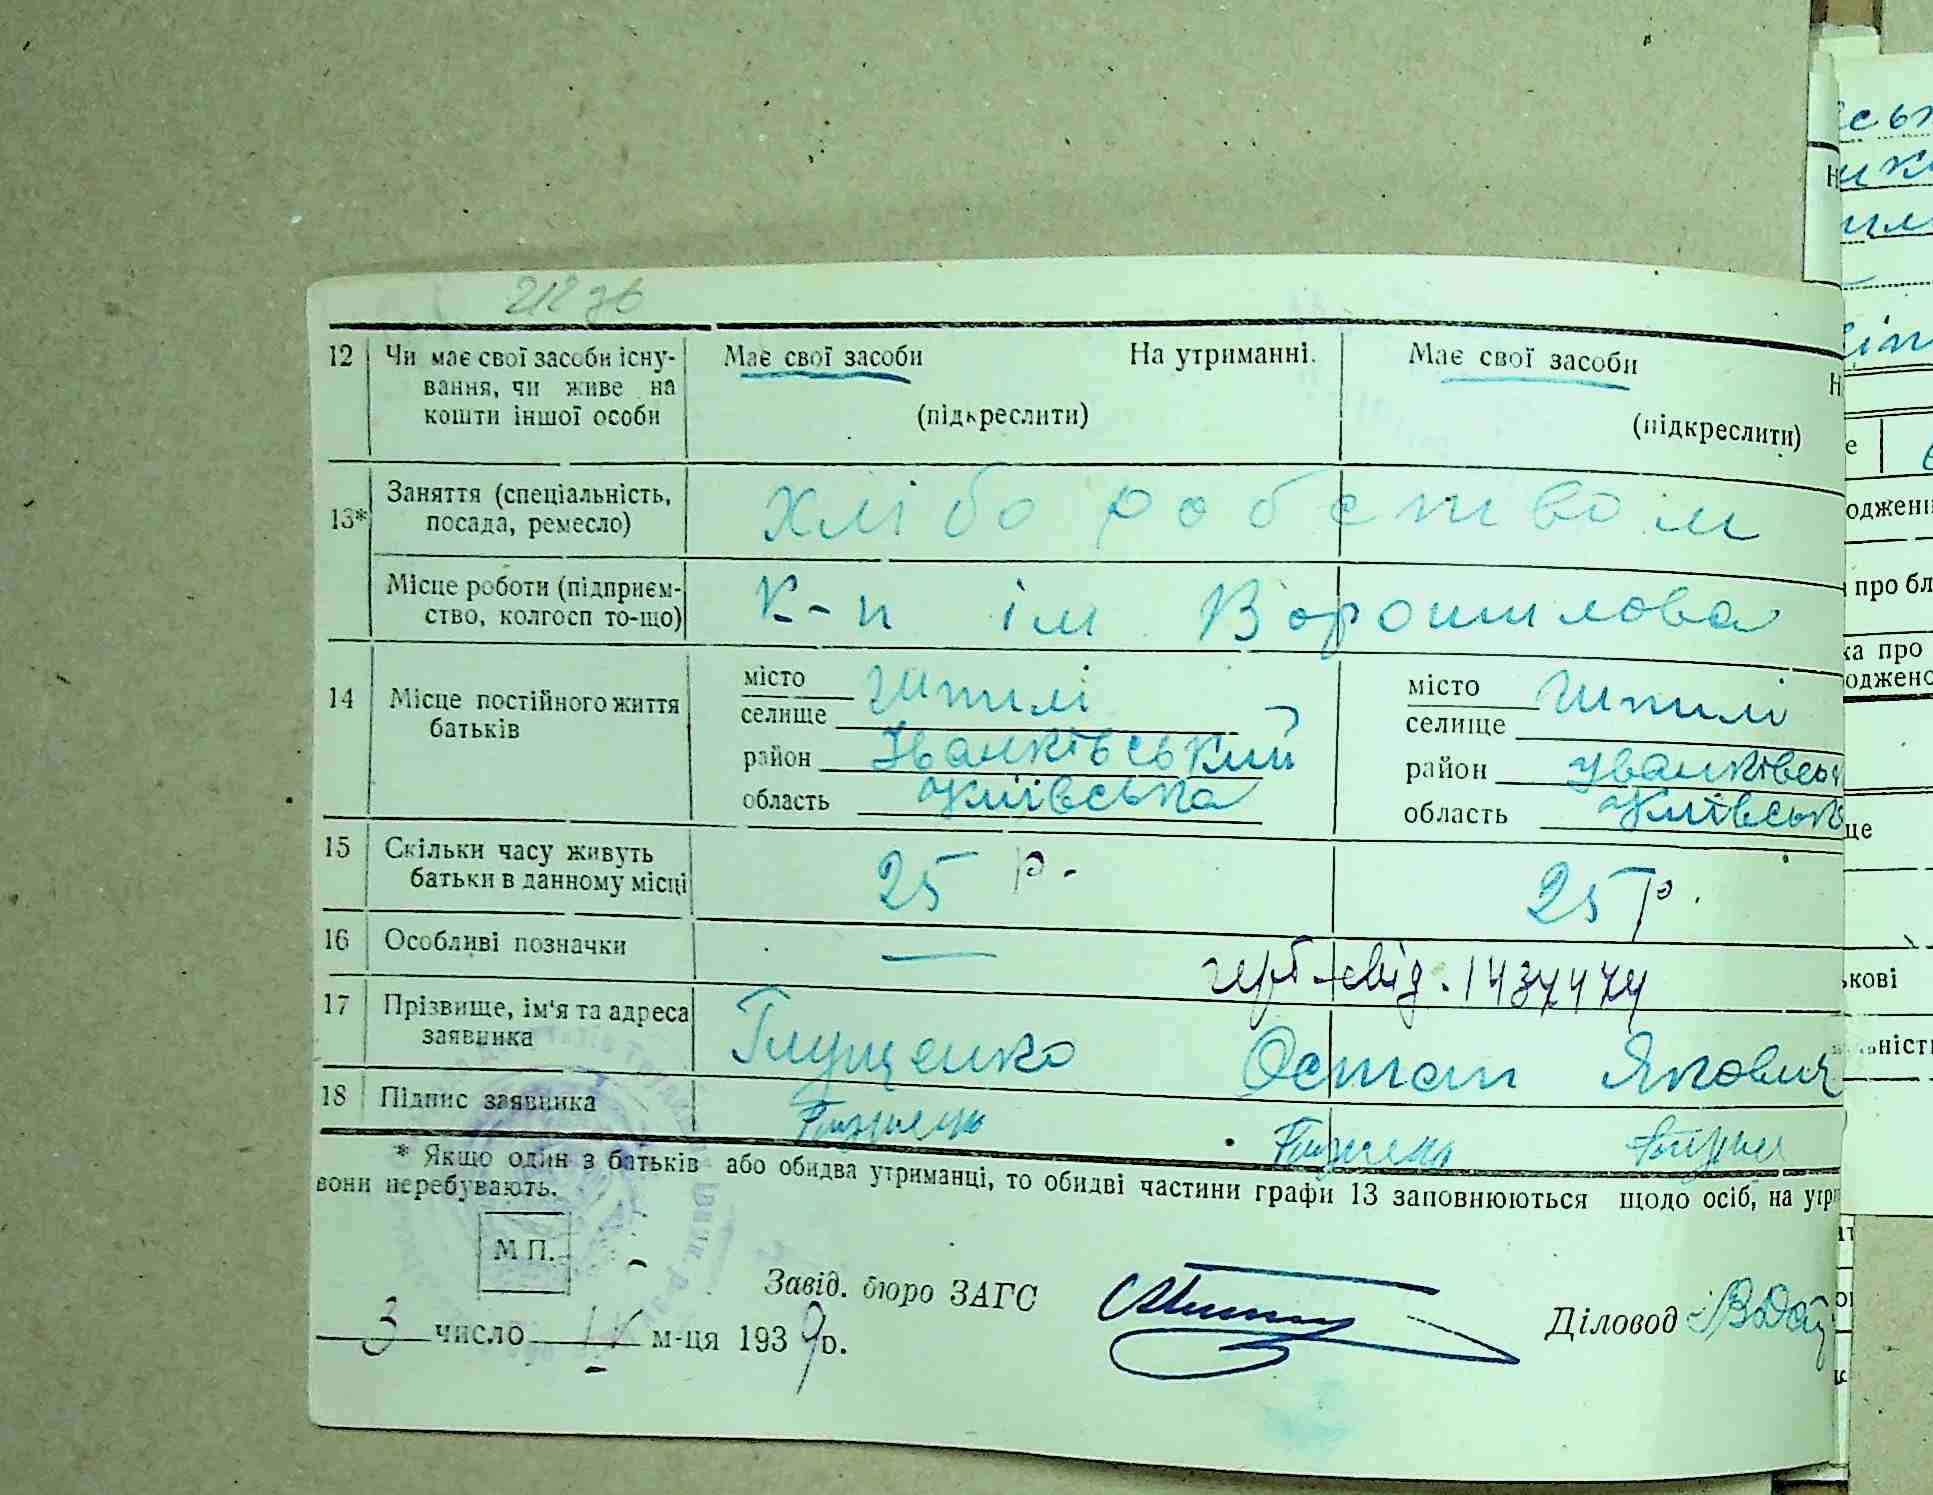 21276
12 Чи має свої засоби існу-
вання, чи живе на
кошти іншої особи
Має свої засоби На утриманні.
(підкреслити)
Має свої засоби Н
(підкреслити)
13* Заняття (спеціальність,
посада, ремесло)
хліборобством
Місце роботи (підприєм-
ство, колгосп то-що)
К-п ім Ворошилова
14 Місце постійного життя
батьків
місто
селище Шпилі
район Іванківський
область Київська
місто
селище Шпилі
район Іванківськ
область Київськ
15 Скільки часу живуть
батьки в данному місці
25 р. 25 р.
16 Особливі позначки — герб. свід. 1437474
17 Прізвище, ім'я та адреса
заявника
Глущенко Остап Якович
18 Підпис заявника
* Якщо один з батьків або обидва утриманці, то обидві частини графи 13 заповнюються щодо осіб, на утри
вони перебувають.
М П.
Завід. бюро ЗАГС
Діловод
3 число IV м-ця 1939 р.